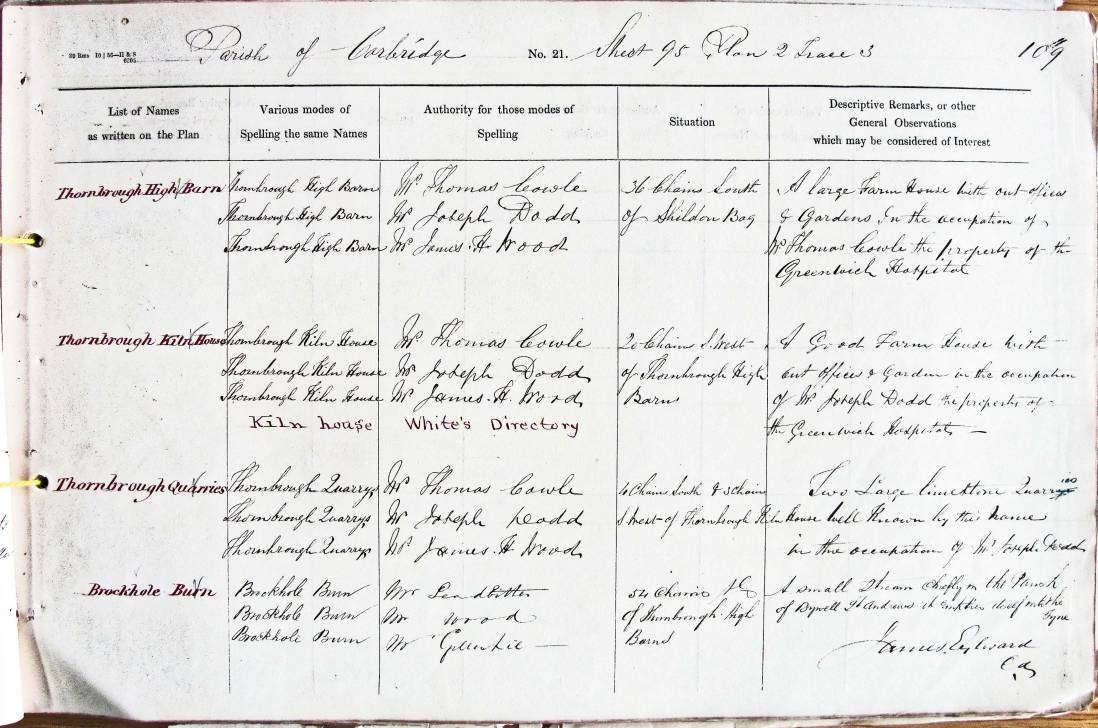 Parish of Corbridge No. 21. Sheet 95 Plan 2 Trace 3 109
List of Names as written on the Plan
Various modes of Spelling the same Names
Authority for those modes of Spelling
Situation
Descriptive Remarks, or other General Observations which may be considered of Interest
Thornbrough High Barn
Thornbrough High Barn
Thornbrough High Barn
Thornbrough High Barn
Mr. Thomas Cowle
Mr Joseph Dodd
Mr James. H Wood
36 Chains South
of Shildon Bog
A large Farm House with out offices
& Gardens In the occupation of
Mr Thomas Cowle the property of the
Greenwich Hospital
Thornbrough Kiln House
Thornbrough Kiln House
Thornbrough Kiln House
Thornbrough Kiln House
Kiln house
Mr Thomas Cowle
Mr Joseph Dodd
Mr James. H. Wood
White's Directory
20 Chain S. West
of Thornbrough High
Barn
A Good Farm House with
out offices & Garden in the occupation
of Mr Joseph Dodd the property of
the Greenwich Hospital —
Thornbrough Quarries
Thornbrough Quarrys
Thornbrough Quarrys
Thornbrough Quarrys
Mr Thomas Cowle
Mr Joseph Dodd
Mr James. H Wood
Chain South & 5 Chain
S West of Thornbrough Kiln House
Two Large limestone Quarries
well Known by this Name
in the occupation of Mr Joseph Dodd
Brockhole Burn
Brockhole Burn
Brockhole Burn
Brockhole Burn
Mr Leadbitter
Mr Wood
Mr Greenhie —
54 Chains
of Thornbrough High
Barns
A small Stream chiefly in the Parish
of Bywell St Andrews it empties itself into the
Tyne
James. Aylward
C.A